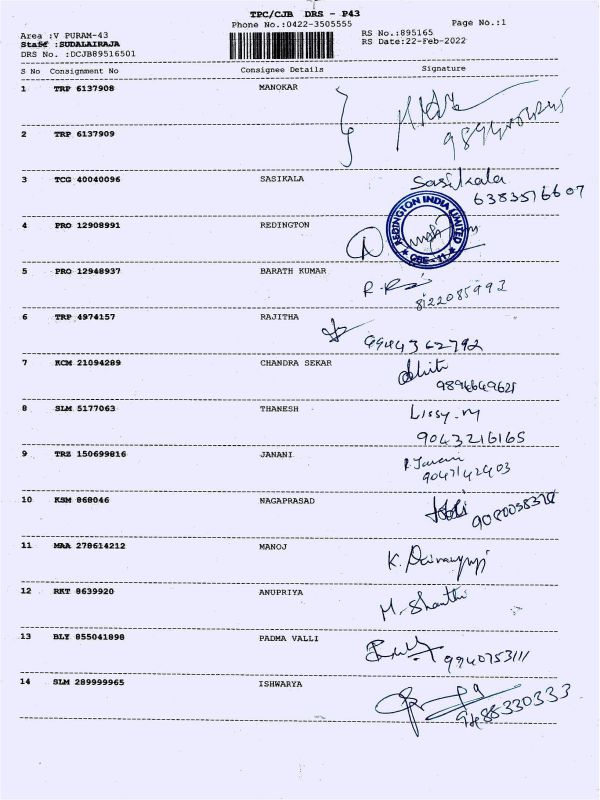 TPC/CJB DRS - P43
Phone No.:0422-3505555 Page No.:1
Area :V PURAM-43 RS No.:895165
Staff :SUDALAIRAJA RS Date:22-Feb-2022
DRS No. :DCJB89516501
S No Consignment No Consignee Details Signature
1 TRP 6137908 MANOKAR
2 TRP 6137909
3 TCG 40040096 SASIKALA Sasikala
6383516607
4 PRO 12908991 REDINGTON REDINGTON INDIA LIMITED
5 PRO 12948937 BARATH KUMAR
8122085992
6 TRP 4974157 RAJITHA
9944362792
7 KCM 21094289 CHANDRA SEKAR
9894649621
8 SLM 5177063 THANESH Lissy.M
9043216165
9 TRZ 150699816 JANANI P. Janani
9047142403
10 KSM 868046 NAGAPRASAD
9080038378
11 MAA 278614212 MANOJ K.
12 RKT 8639920 ANUPRIYA M. Shanthi
13 BLY 855041898 PADMA VALLI
9940753111
14 SLM 289999965 ISHWARYA